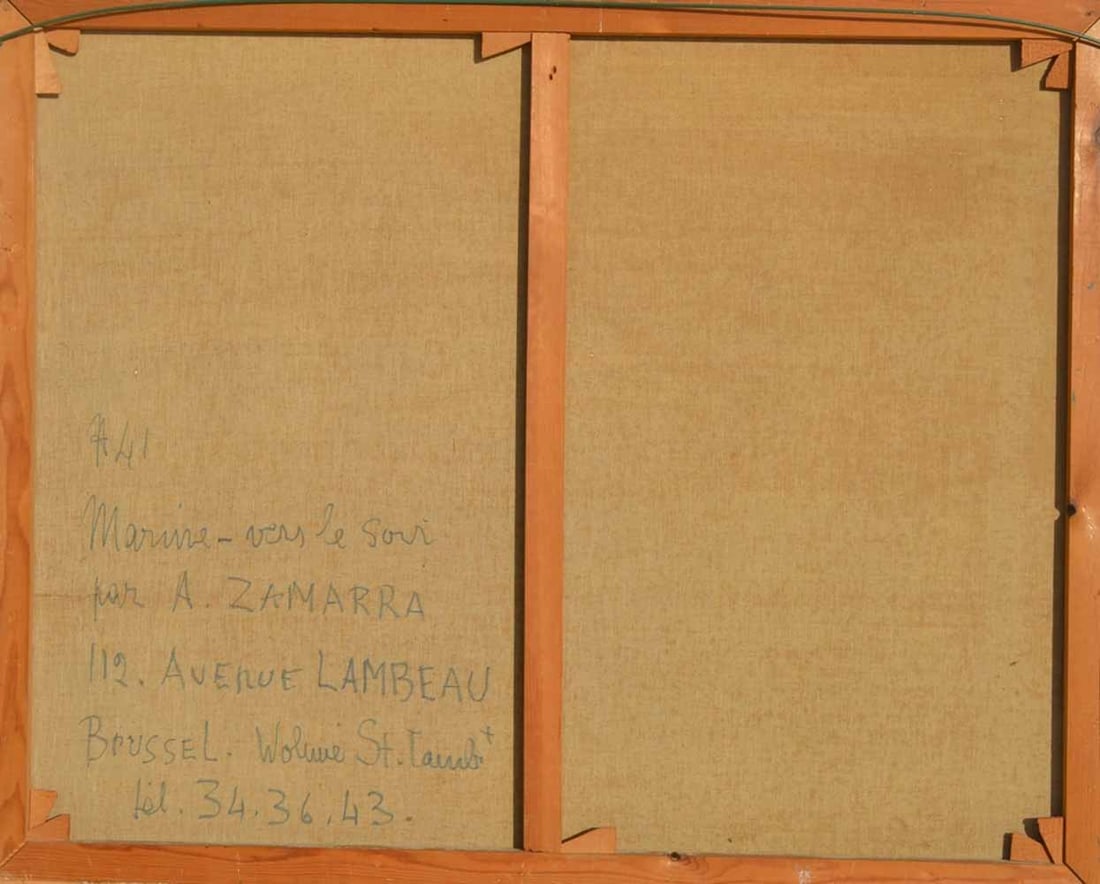 A41
Marine - vers le Soir
par A. ZAMARRA
112. AVENUE LAMBEAU
BRUSSEL. Woluwé St. Lambt
tél. 34.36.43.